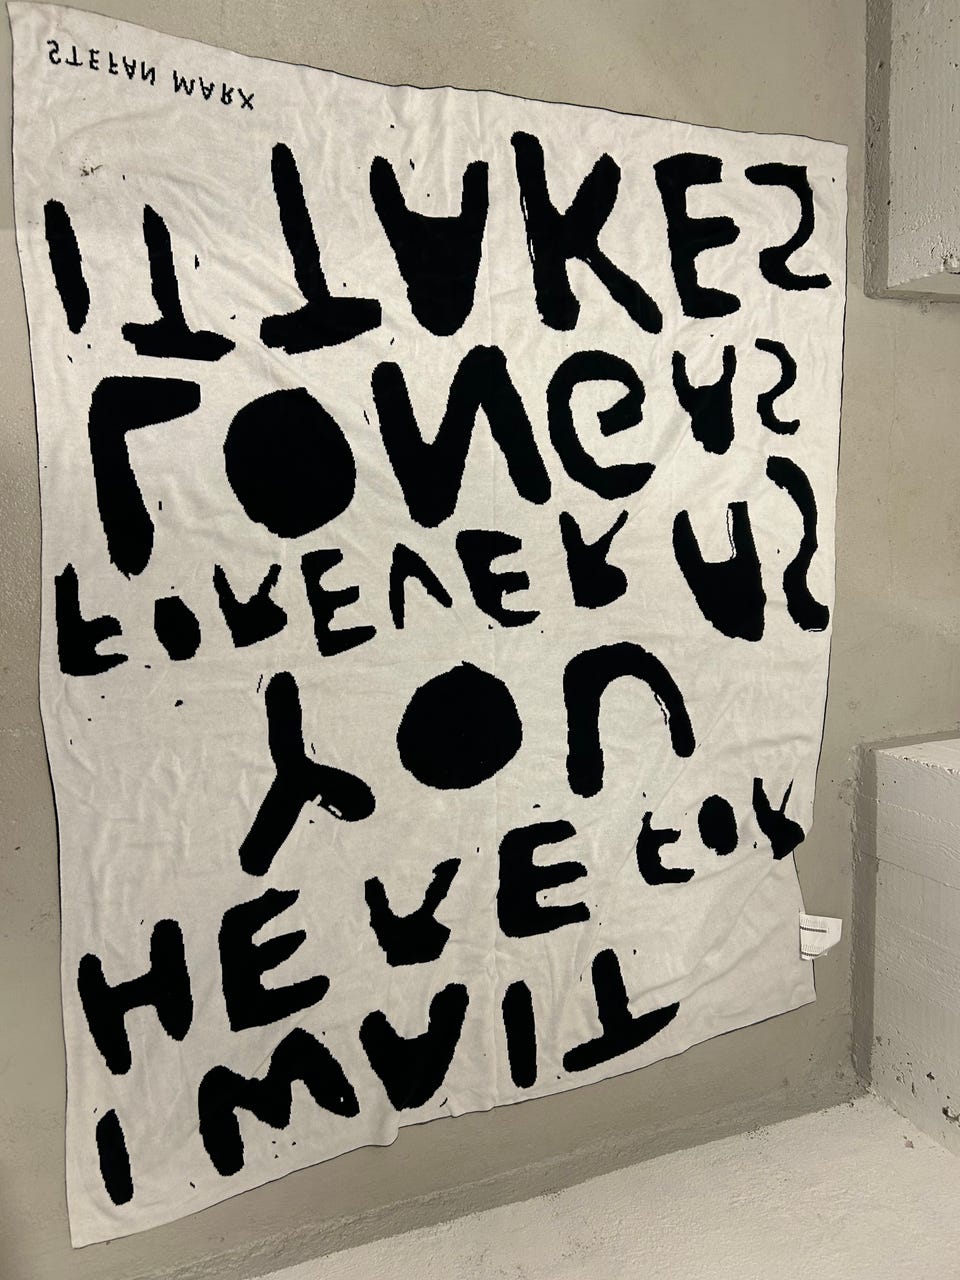 I WAIT
HERE FOR
YOU
FOREVER AS
LONG AS
IT TAKES
STEFAN MARX